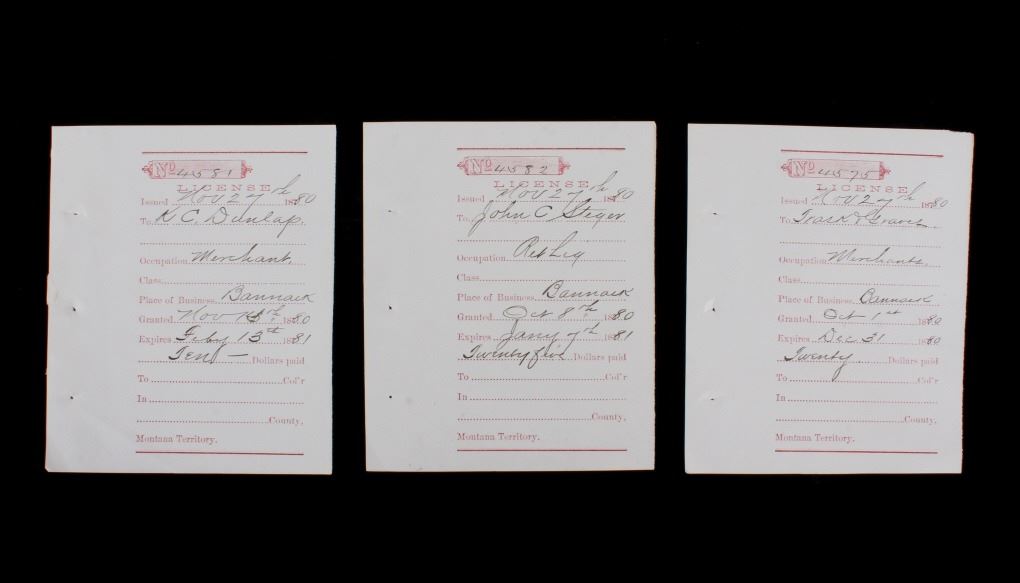 No 4581
LICENSE
Issued Nov 27th 1880
To K. C. Dunlap.
Occupation Merchant.
Class
Place of Business Bannack
Granted Nov 13th 1880
Expires Feby 13th 1881
Ten — Dollars paid
To Col'r
In
County,
Montana Territory.
No 4582
LICENSE
Issued Nov 27th 1880
To John C Steger
Occupation Ret Liq
Class
Place of Business Bannack
Granted Oct 8th 1880
Expires Jany 7th 1881
Twenty five Dollars paid
To Col'r
In
County,
Montana Territory.
No 4575
LICENSE
Issued Nov 27th 1880
To Trask & Graves
Occupation Merchants.
Class
Place of Business Bannack
Granted Oct 1st 1880
Expires Dec 31 1880
Twenty Dollars paid
To Col'r
In
County,
Montana Territory.